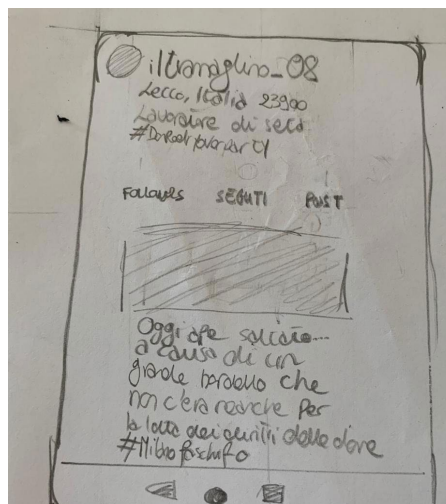 iltramaglino_08
Lecco, Italia 23900
Lavoratore di seta
FOLLOWERS SEGUITI POST
Oggi ape saltato...
a causa di un
grande bordello che
non c'era neanche per
la lotta dei quintri delle dove